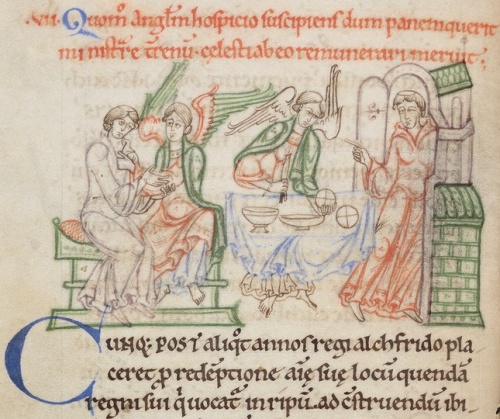 .VII. Quom̄ angl̄m hospicio suscipiens dum panem querit
ministr̄e t̄renū. celestia b eo remunerari meruit.
Cunq; pos t̄ aliqt̄ annos regi alchfrido pla
ceret p̱ redēptione aīę suę locū quendā
regni sui q̇ uocat̄ inripū. ad cōstruendū ibi-